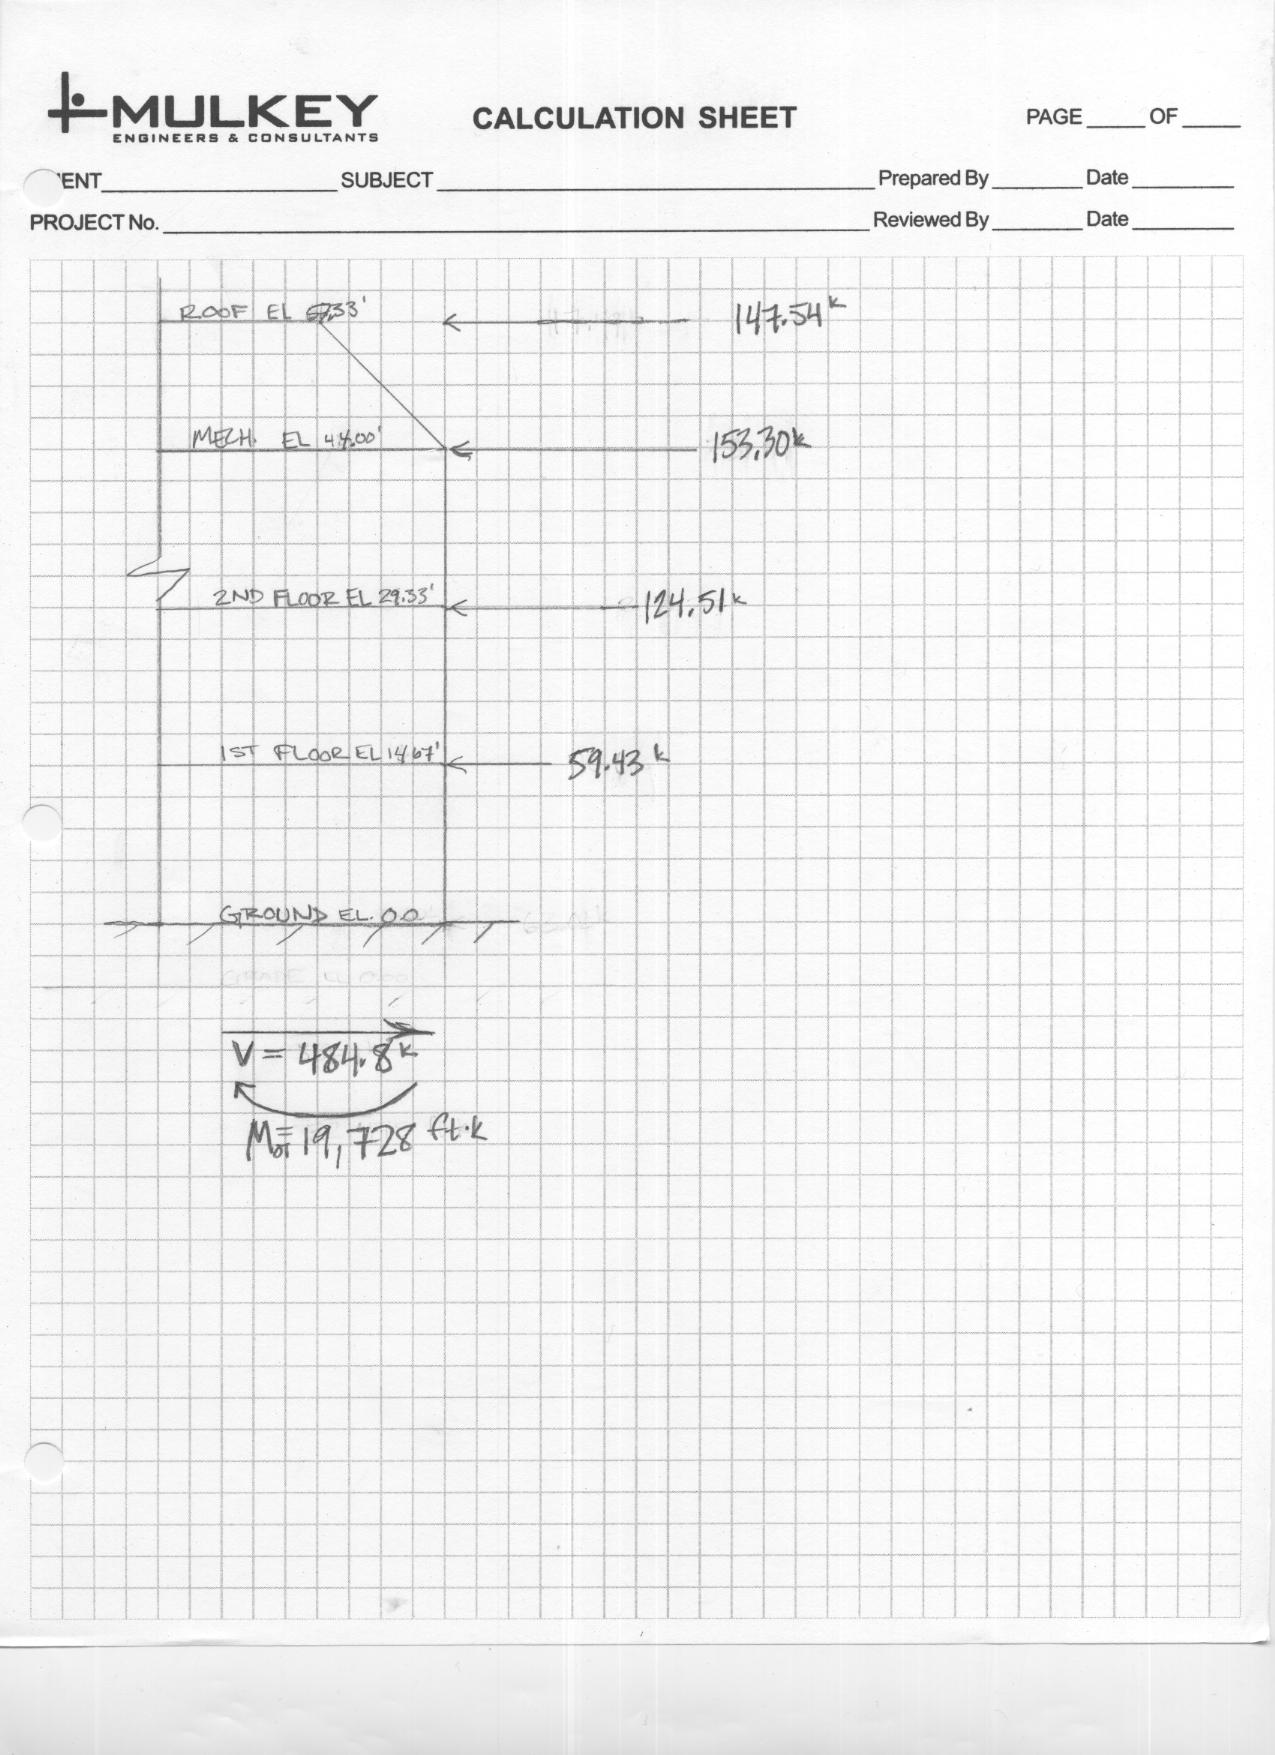 MULKEY
ENGINEERS & CONSULTANTS
CALCULATION SHEET
PAGE _____ OF _____
IENT
SUBJECT
Prepared By
Date
PROJECT No.
Reviewed By
Date
ROOF EL 57.33'
147.54k
MECH. EL 44.00'
153.30k
2ND FLOOR EL 29.33'
124.51k
1ST FLOOR EL 14.67'
59.43k
GROUND EL. 0.0
GRADE EL 0.00
V = 484.8k
MOT = 19,728 ft·k